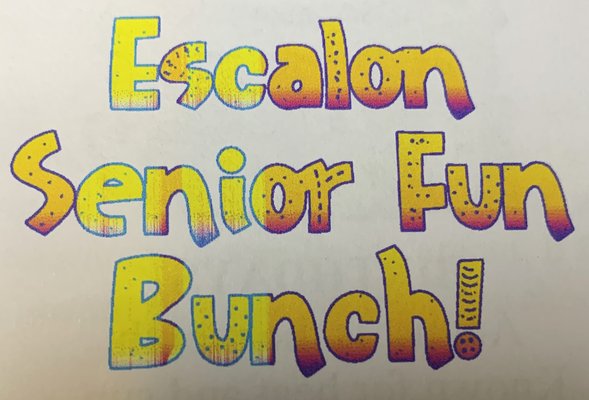 Escalon
Senior Fun
Bunch!